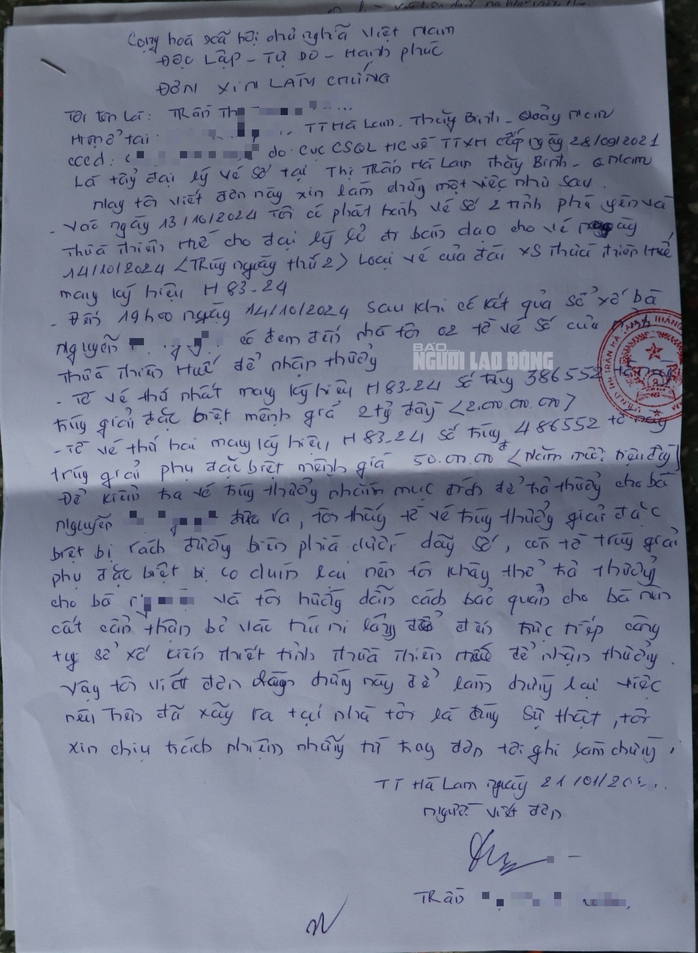 Cộng hoà xã hội chủ nghĩa Việt Nam
Độc Lập - Tự Do - Hạnh phúc
ĐƠN XIN LÀM CHỨNG
Tôi tên là: Trần Th
Hiện ở tại TT Hà Lam - Thăng Bình - Quảng Nam
CCCD: do Cục CSQL HC về TTXH cấp ngày 28/09/2021
Là tổng đại lý vé số tại Thị Trấn Hà Lam Thăng Bình - Q Nam
Nay tôi viết đơn này xin làm chứng một việc như sau
- Vào ngày 13/10/2024 Tôi có phát hành vé số 2 tỉnh phú yên và
Thừa Thiên Huế cho đại lý lẻ đi bán dạo cho vé ngày
14/10/2024 <Trúng ngày thứ 2> Loại vé của đài XS Thừa Thiên Huế
mang ký hiệu H 83-24
- Đến 19h00 ngày 14/10/2024 sau khi có kết quả sổ xố bà
Nguyễn có đem đến nhà tôi 02 tờ vé số của
Thừa Thiên Huế để nhận thưởng
BÁO
NGƯỜI LAO ĐỘNG
- Tờ vé thứ nhất mang ký hiệu H 83.24 số trúng 386552
trúng giải đặc biệt mệnh giá 2 tỷ đồng <2.000.000.000>
- Tờ vé thứ hai mang ký hiệu H 83-24 số trúng 486552 tờ này
trúng giải phụ đặc biệt mệnh giá 50.000.000đ <Năm mươi triệu đồng>
Để kiểm tra vé trúng thưởng nhằm mục đích để trả thưởng cho bà
Nguyễn đưa ra, tôi thấy tờ vé trúng thưởng giải đặc
biệt bị rách đường biên phía dưới dãy số, còn tờ trúng giải
phụ đặc biệt bị co dúm lại nên tôi không thể trả thưởng
cho bà và tôi hướng dẫn cách bảo quản cho bà nên
cất cẩn thận bỏ vào túi ni lông để đến trực tiếp công
ty sổ xố kiến thiết tỉnh Thừa Thiên Huế để nhận thưởng.
Vậy tôi viết đơn chứng này để làm chứng lại việc
nêu trên đã xảy ra tại nhà tôi là đúng sự thật, tôi
xin chịu trách nhiệm những từ trong đơn tôi ghi làm chứng.
TT Hà Lam ngày 21/01/20
Người viết đơn
Trần